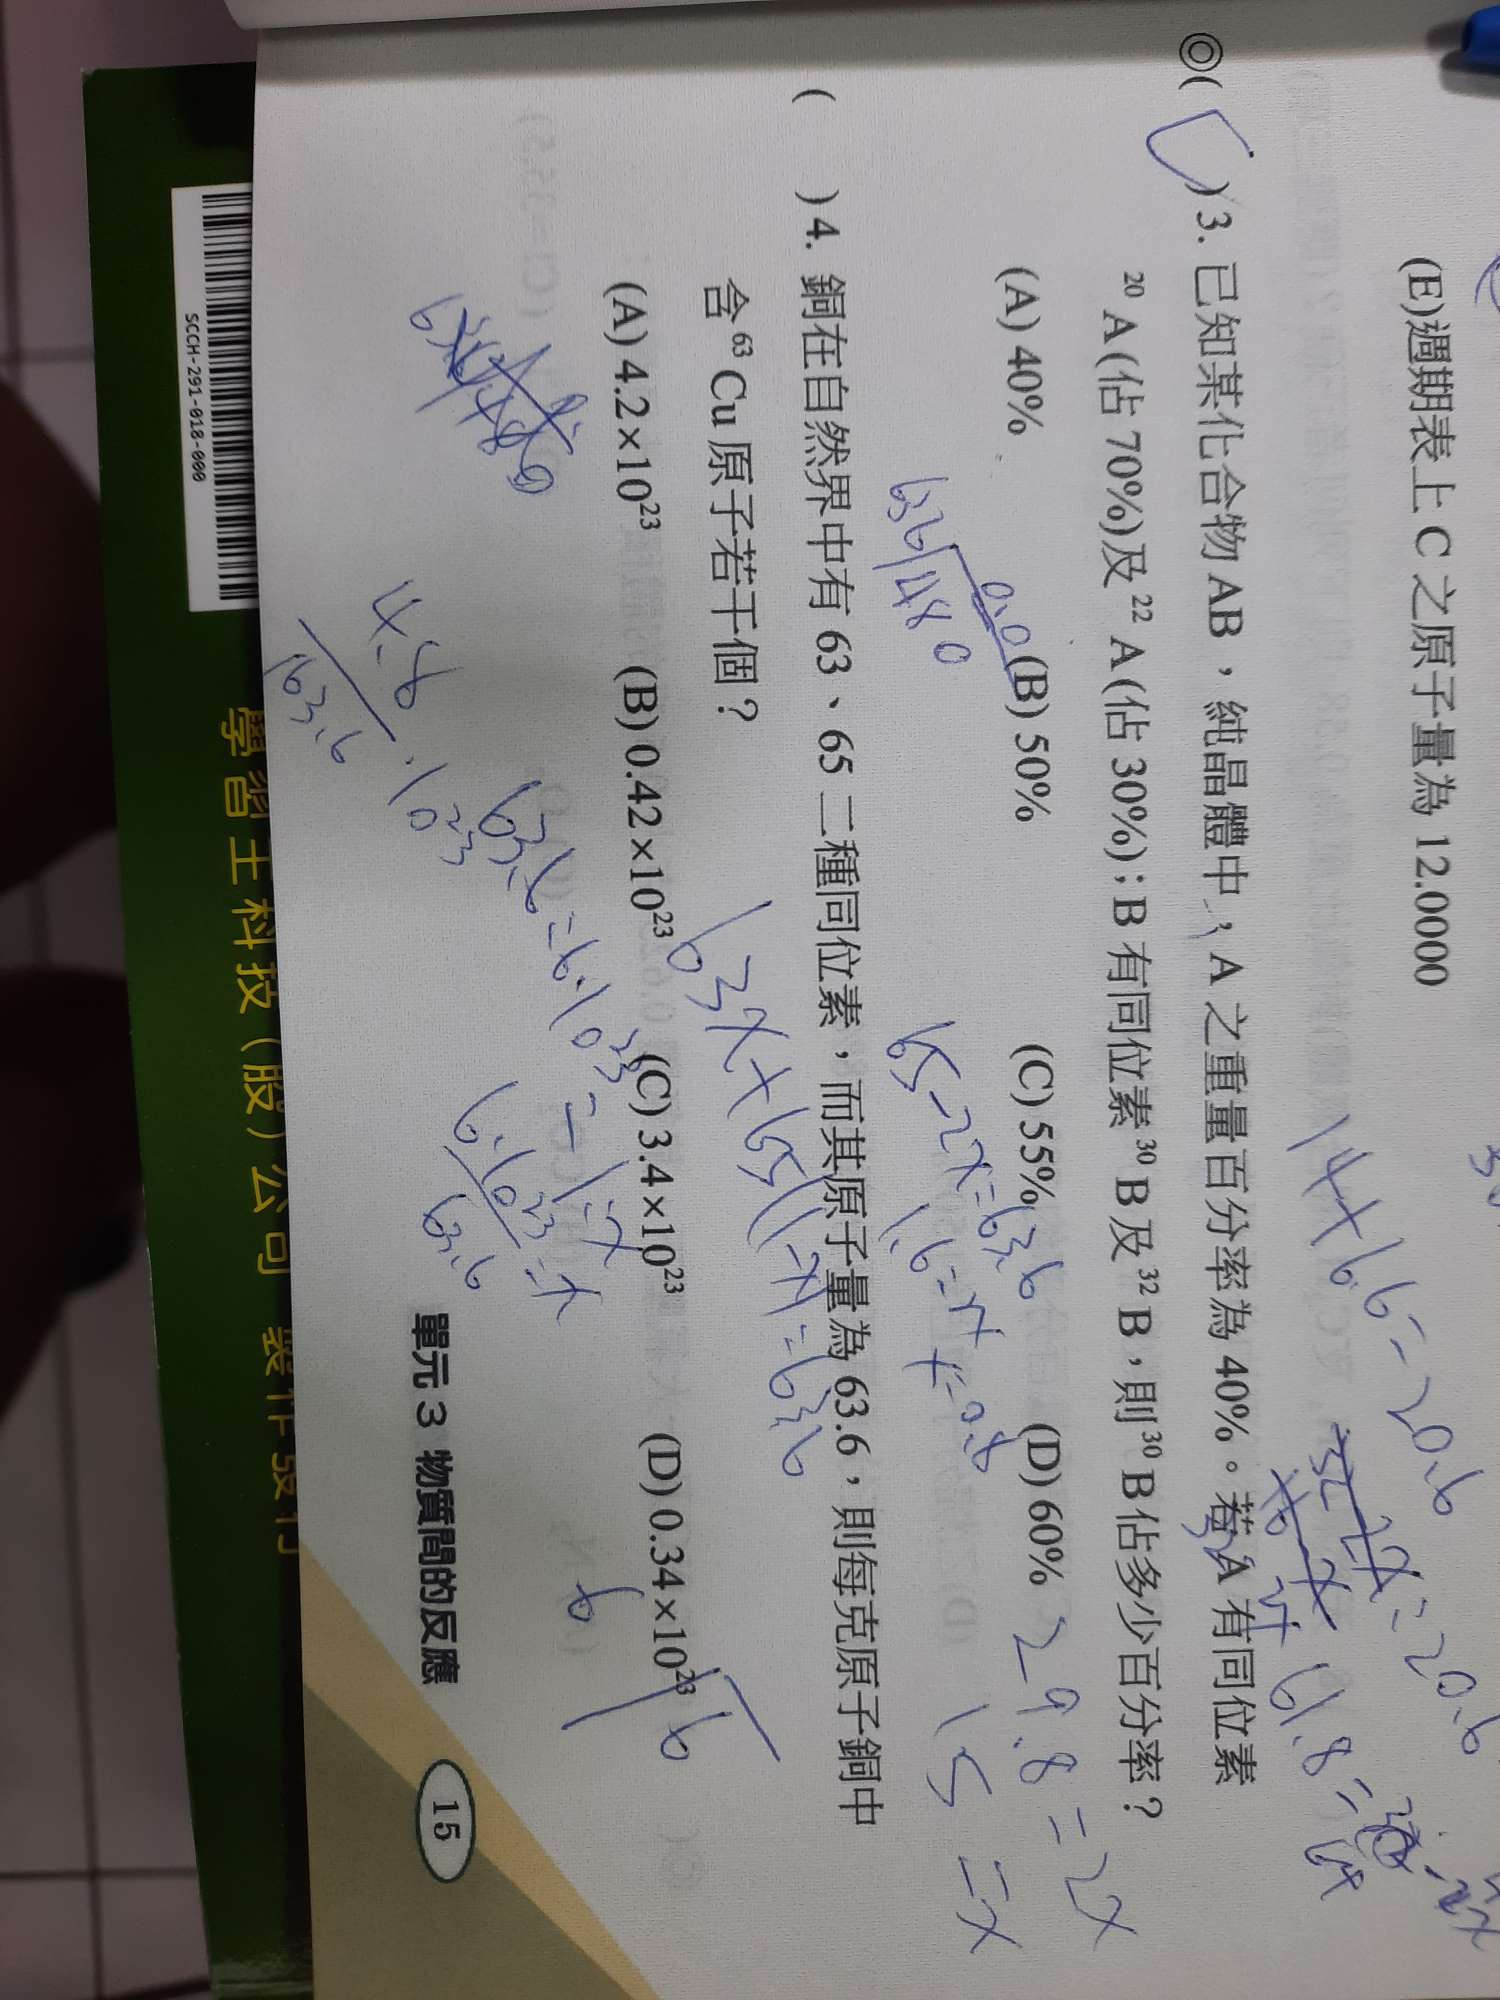 (E)週期表上 C 之原子量為 12.0000
14+6.6=20.6
◎( C )3. 已知某化合物 AB，純晶體中，A 之重量百分率為 40%。若 A 有同位素
²⁰A(佔 70%)及²²A(佔 30%)；B 有同位素³⁰B 及³²B，則³⁰B 佔多少百分率？
(A) 40% (B) 50% (C) 55% (D) 60%
29.8=2x
636 480
65-2x=63.6
1.6=2x
x=0.8
( )4. 銅在自然界中有 63、65 二種同位素，而其原子量為 63.6，則每克原子銅中
含⁶³Cu 原子若干個？
63x+65(1-x)=63.6
(A) 4.2×10²³ (B) 0.42×10²³ (C) 3.4×10²³ (D) 0.34×10²³
63.6=6.10²³=
6.10²³
63.6
=x
4.8
63.6
.10²³
單元 3 物質間的反應
15
學習王科技(股)公司 製作發行
SCCH-291-018-000